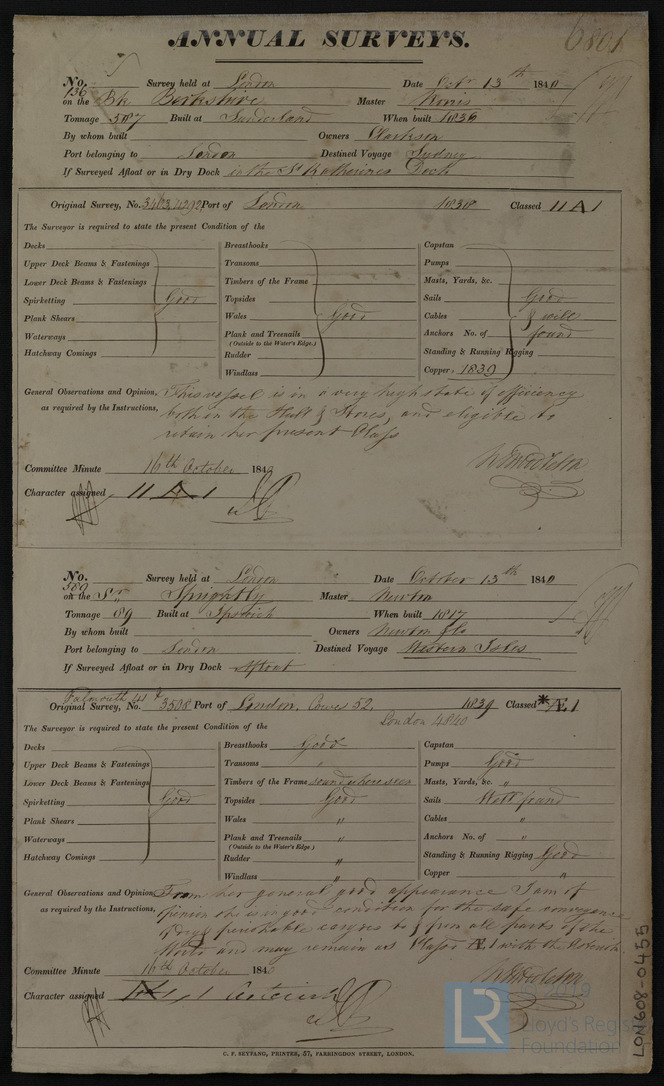 ANNUAL SURVEYS.
6801
No. 136 Survey held at London Date Octr 13th 1840
on the Bk Berkshire Master Norris
Tonnage 587 Built at Sunderland When built 1836
By whom built Owners Clarkson
Port belonging to London Destined Voyage Sydney
If Surveyed Afloat or in Dry Dock in the St Katherines Dock
Original Survey, No. Port of London 1838 Classed 11 A 1
The Surveyor is required to state the present Condition of the
Decks
Upper Deck Beams & Fastenings
Lower Deck Beams & Fastenings
Spirketting Good
Plank Shears
Waterways
Hatchway Comings
Breasthooks
Transoms
Timbers of the Frame
Topsides
Wales Good
Plank and Treenails
(Outside to the Water's Edge.)
Rudder
Windlass
Capstan
Pumps
Masts, Yards, &c.
Sails Good
Cables & well
Anchors No. of found
Standing & Running Rigging
Copper 1839
General Observations and Opinion, This vessel is in a very high state of efficiency
as required by the Instructions, both in the Hull & Stores, and eligible to
retain her present Class
Committee Minute 16th October 1840
Character assigned 11 A 1
No. 589 Survey held at London Date October 13th 1840
on the Sr Sprightly Master Newton
Tonnage 89 Built at Ipswich When built 1817
By whom built Owners Newton & Co
Port belonging to London Destined Voyage Western Isles
If Surveyed Afloat or in Dry Dock Afloat
Falmouth 41
Original Survey, No. 3508 Port of London, Cowes 52 1839 Classed *Æ 1
London 4840
The Surveyor is required to state the present Condition of the
Decks
Upper Deck Beams & Fastenings
Lower Deck Beams & Fastenings
Spirketting Good
Plank Shears
Waterways
Hatchway Comings
Breasthooks Good
Transoms "
Timbers of the Frame sound where seen
Topsides Good
Wales "
Plank and Treenails "
(Outside to the Water's Edge.)
Rudder "
Windlass "
Capstan
Pumps Good
Masts, Yards, &c. "
Sails Well found
Cables "
Anchors No. of "
Standing & Running Rigging Good
Copper "
General Observations and Opinion, From her general good appearance I am of
as required by the Instructions, opinion she is in good condition for the safe conveyance
of dry & perishable cargoes to & from all parts of the
World and may remain as Class Æ 1 with the Asterisk
Committee Minute 16th October 1840
Character assigned Æ 1 Asterisk
C. F. SEYFANG, PRINTER, 57, FARRINGDON STREET, LONDON.
LON608-0455
LR
Lloyd's Register
Foundation